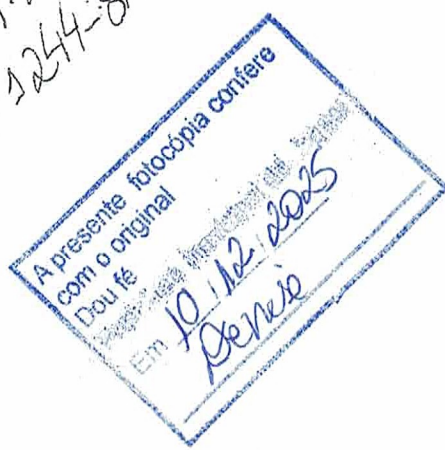 1244-8
A presente fotocópia confere
com o original
Dou fé
Em 10.12.2025